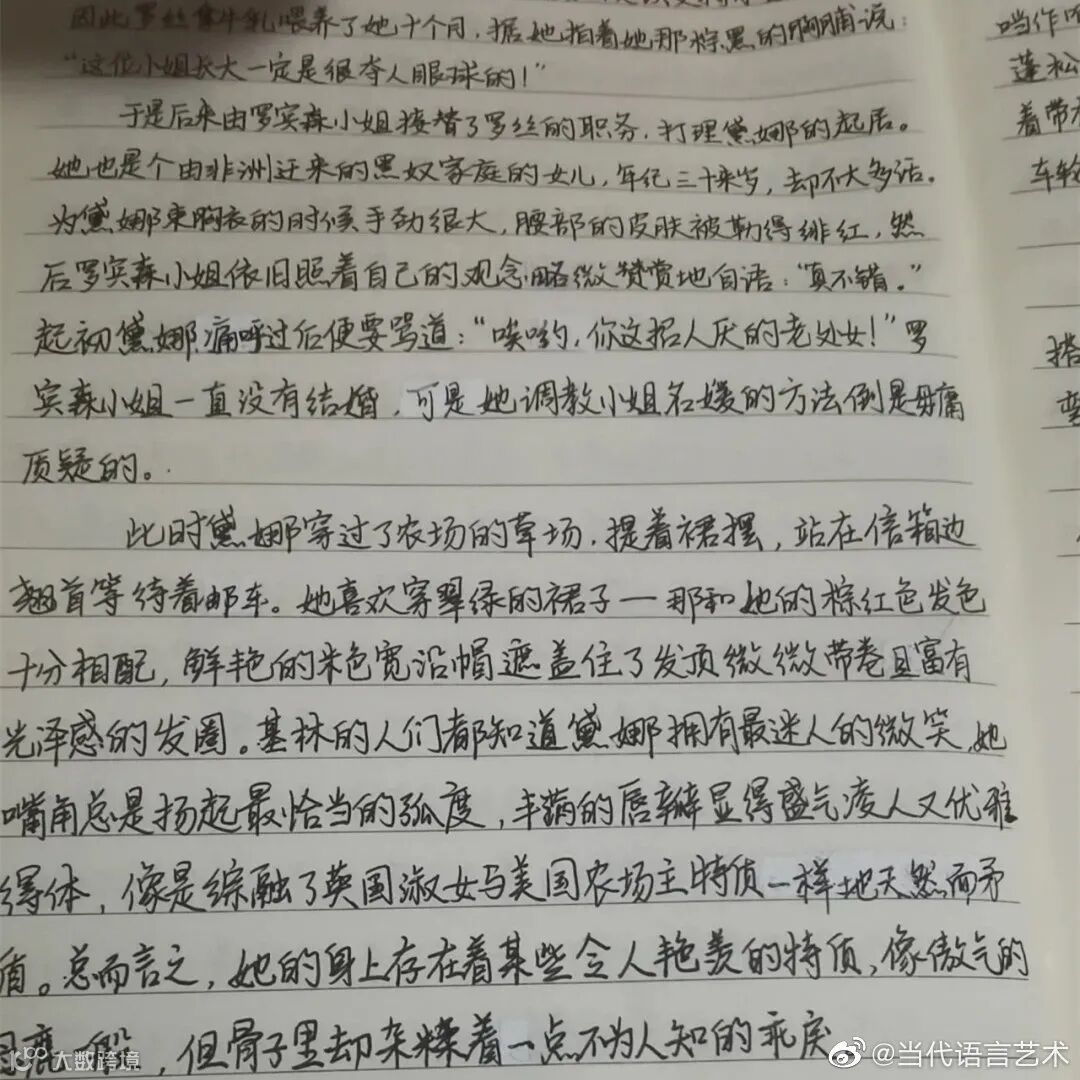 因此罗丝拿牛乳喂养了她十个月，据她指着她那棕黑的胸脯说：
“这位小姐长大一定是很夺人眼球的！”
于是后来由罗宾森小姐接替了罗丝的职务，打理黛娜的起居。
她也是个由非洲迁来的黑奴家庭的女儿，年纪三十来岁，却不大多话。
为黛娜束胸衣的时候手劲很大，腰部的皮肤被勒得绯红，然
后罗宾森小姐依旧照着自己的观念略微赞赏地自语：“真不错。”
起初黛娜痛呼过后便要骂道：“唉哟，你这招人厌的老处女！”罗
宾森小姐一直没有结婚，可是她调教小姐名媛的方法倒是毋庸
质疑的。
此时黛娜穿过了农场的草场，提着裙摆，站在信箱边
翘首等待着邮车。她喜欢穿翠绿的裙子—那和她的棕红色发色
十分相配，鲜艳的米色宽沿帽遮盖住了发顶微微带卷且富有
光泽感的发圈。基林的人们都知道黛娜拥有最迷人的微笑，她
嘴角总是扬起最恰当的弧度，丰满的唇瓣显得盛气凌人又优雅
得体，像是综融了英国淑女与美国农场主特质一样地天然而矛
盾。总而言之，她的身上存在着某些令人艳羡的特质，像傲气的
鹿一般，但骨子里却杂糅着一点不为人知的乖戾
蓬松
着带
车轮
搭
大数跨境
@当代语言艺术